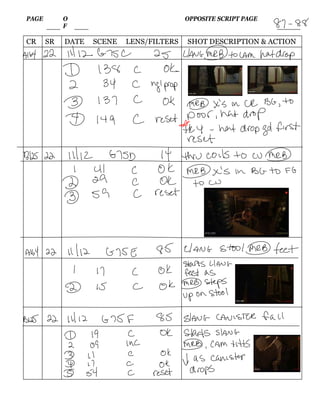 PAGE O OPPOSITE SCRIPT PAGE 87-88
F
CR SR DATE SCENE LENS/FILTERS SHOT DESCRIPTION & ACTION
A144 22 11/12 G75C 25 CLANG MRB to CAM hat drop
1 138 C OK
2 34 C ng/prop
3 137 C OK MRB X's in CR BG, to
4 149 C reset door, hat drop
tk 4 - hat drop gd first
reset
B125 22 11/12 G75D 14 thru coils to CU MRB
1 41 C OK MRB X's in BG to FG
2 29 C OK to CU
3 59 C reset
A144 22 11/12 G75E 85 CLANG Stool, MRB feet
1 17 C OK starts CLANG
feet as
2 15 C OK MRB steps
up on stool
B125 22 11/12 G75F 85 SLANG CANISTER fall
1 19 C OK Starts SLANG
2 09 INC MRB, CAM tilts
3 11 C OK ↓ as canister
4 17 C OK drops
5 54 C reset